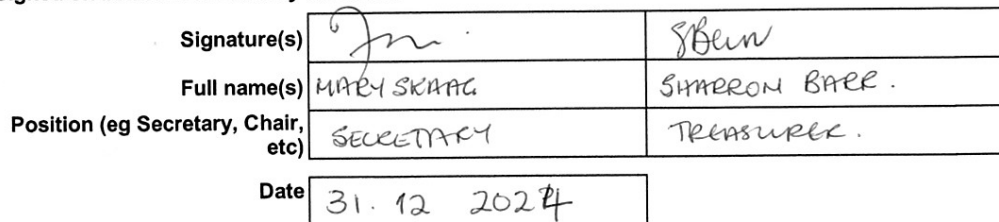 Signature(s)
Full name(s) MARY SKAAG SHARRON BARR.
Position (eg Secretary, Chair, etc) SECRETARY TREASURER.
Date 31. 12 2024